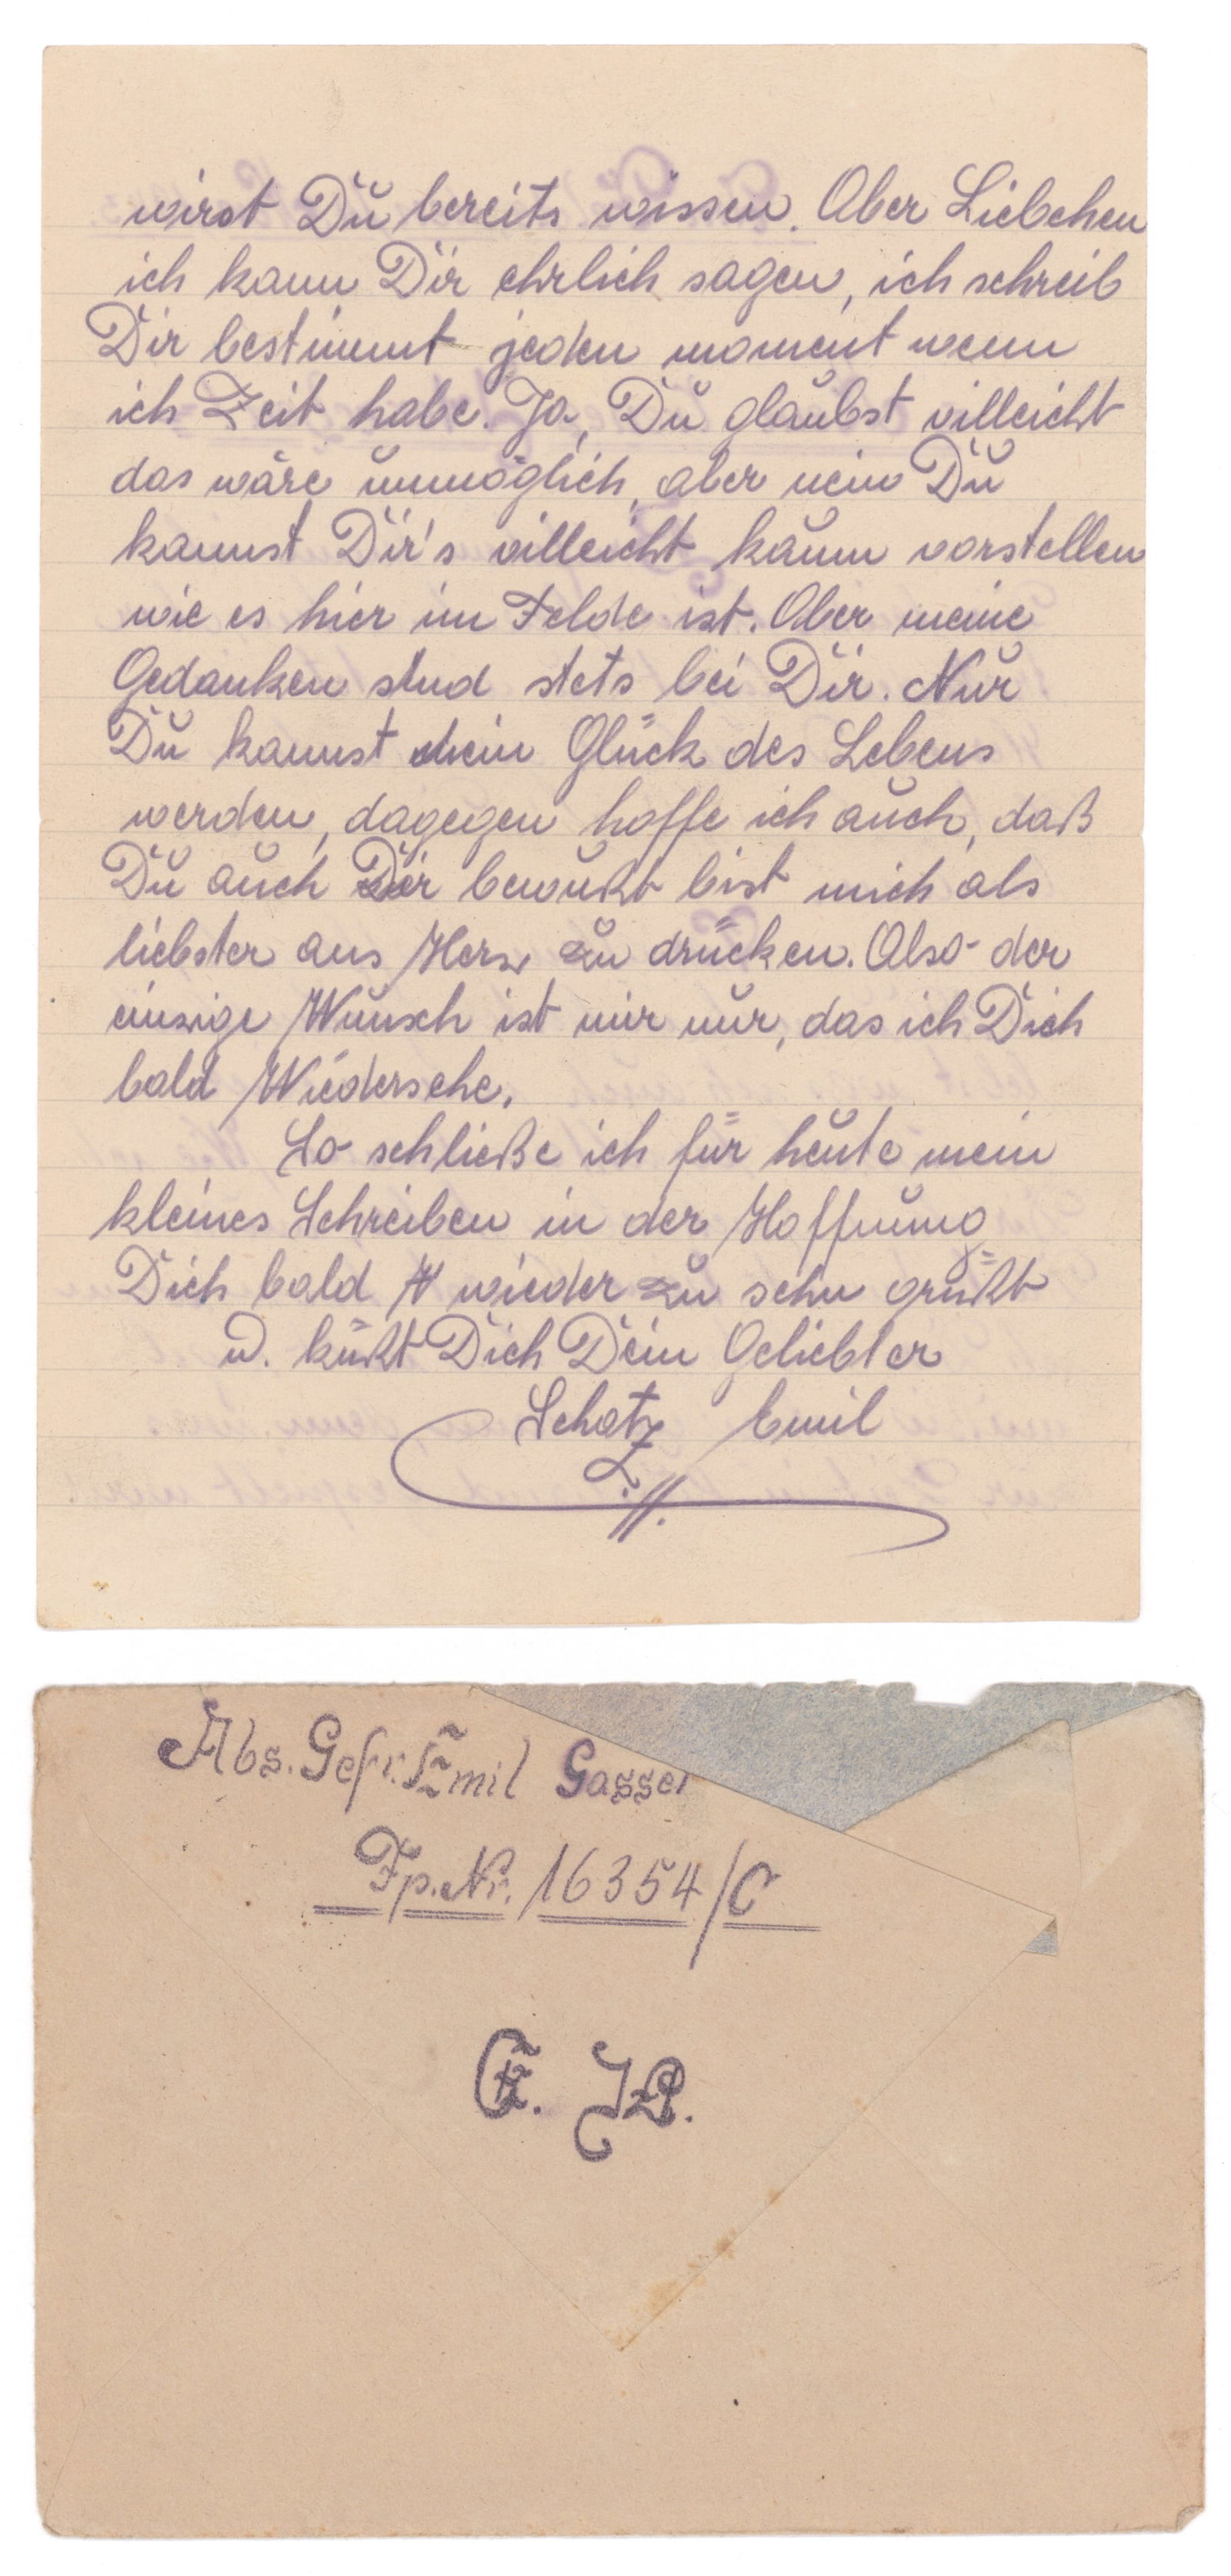 wirst Du bereits wissen. Aber Liebchen
ich kann Dir ehrlich sagen, ich schreib
Dir bestimmt jeden moment wenn
ich Zeit habe. Ja, Du glaubst villeicht
das wäre unmöglich, aber nein Du
kannst Dir's villeicht kaum vorstellen
wie es hier im Felde ist. Aber meine
Gedanken sind stets bei Dir. Nur
Du kannst mein Glück des Lebens
werden, dagegen hoffe ich auch, daß
Du auch Dir bewußt bist mich als
liebster ans Herz zu drücken. Also der
einzige Wunsch ist mir nur, das ich Dich
bald Wiedersehe.
So schließe ich für heute mein
kleines Schreiben in der Hoffnung
Dich bald wieder zu sehn grüßt
u. küßt Dich Dein Geliebter
Schatz Emil
Abs. Gefr. Emil Gasser
Fp. Nr. 16354/C